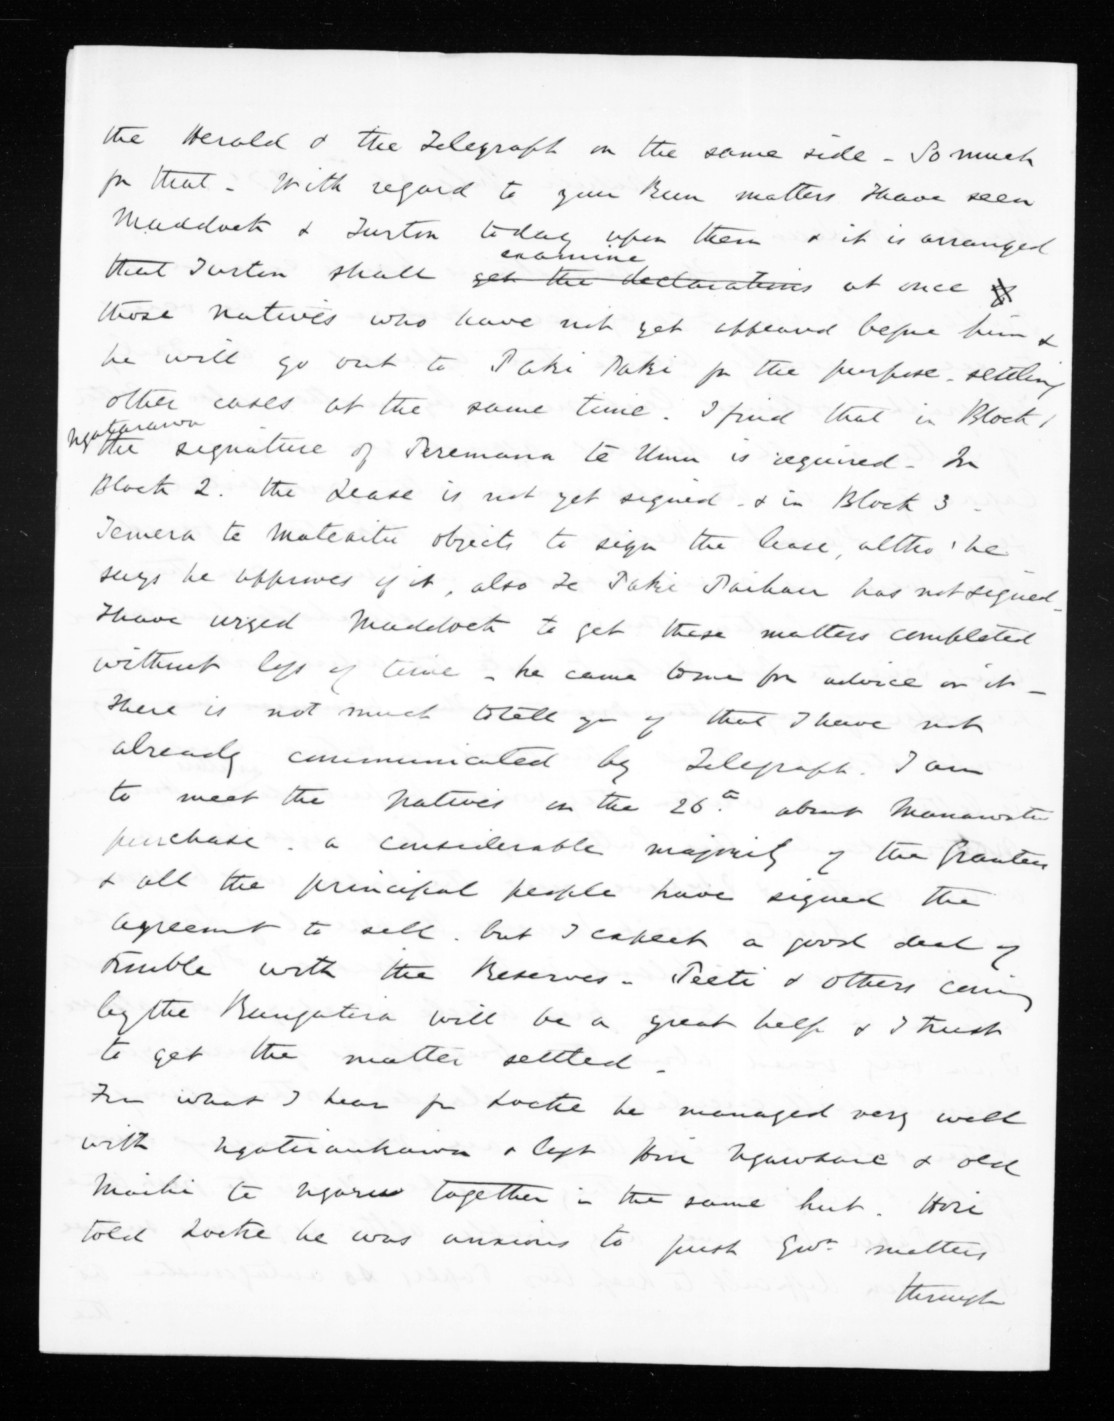 the Herald & the Telegraph on the same side - So much
for that - With regard to your Run matters I have seen
Maddock & Turton today upon them & it is arranged
examine
that Turton shall get the declarations at once of
those natives who have not yet appeared before him &
he will go out to Paki Paki for the purpose - settling
other cases at the same time. I find that in Block 1
Ngatarawa
the signature of Paremana te Umu is required - In
Block 2. the Lease is not yet signed - & in Block 3 -
Temera te objects to sign the lease, altho' he
says he approves of it, also Te Taki has not signed -
I have urged Maddock to get these matters completed
without loss of time - he came to me for advice on it -
There is not much to tell you of that I have not
already communicated by Telegraph. I am
to meet the Natives on the 26th about Manawatu
purchase. a considerable majority of the Grantees
& all the principal people have signed the
agreement to sell. but I expect a good deal of
trouble with the Reserves - Peeti & others coming
by the Rangatira will be a great help & I trust
to get the matter settled -
From what I hear fr Locke he managed very well
with Ngatiraukawa & left Hori & old
Maihi te together in the same hut. Hori
told Locke he was anxious to push Govt. matters
through